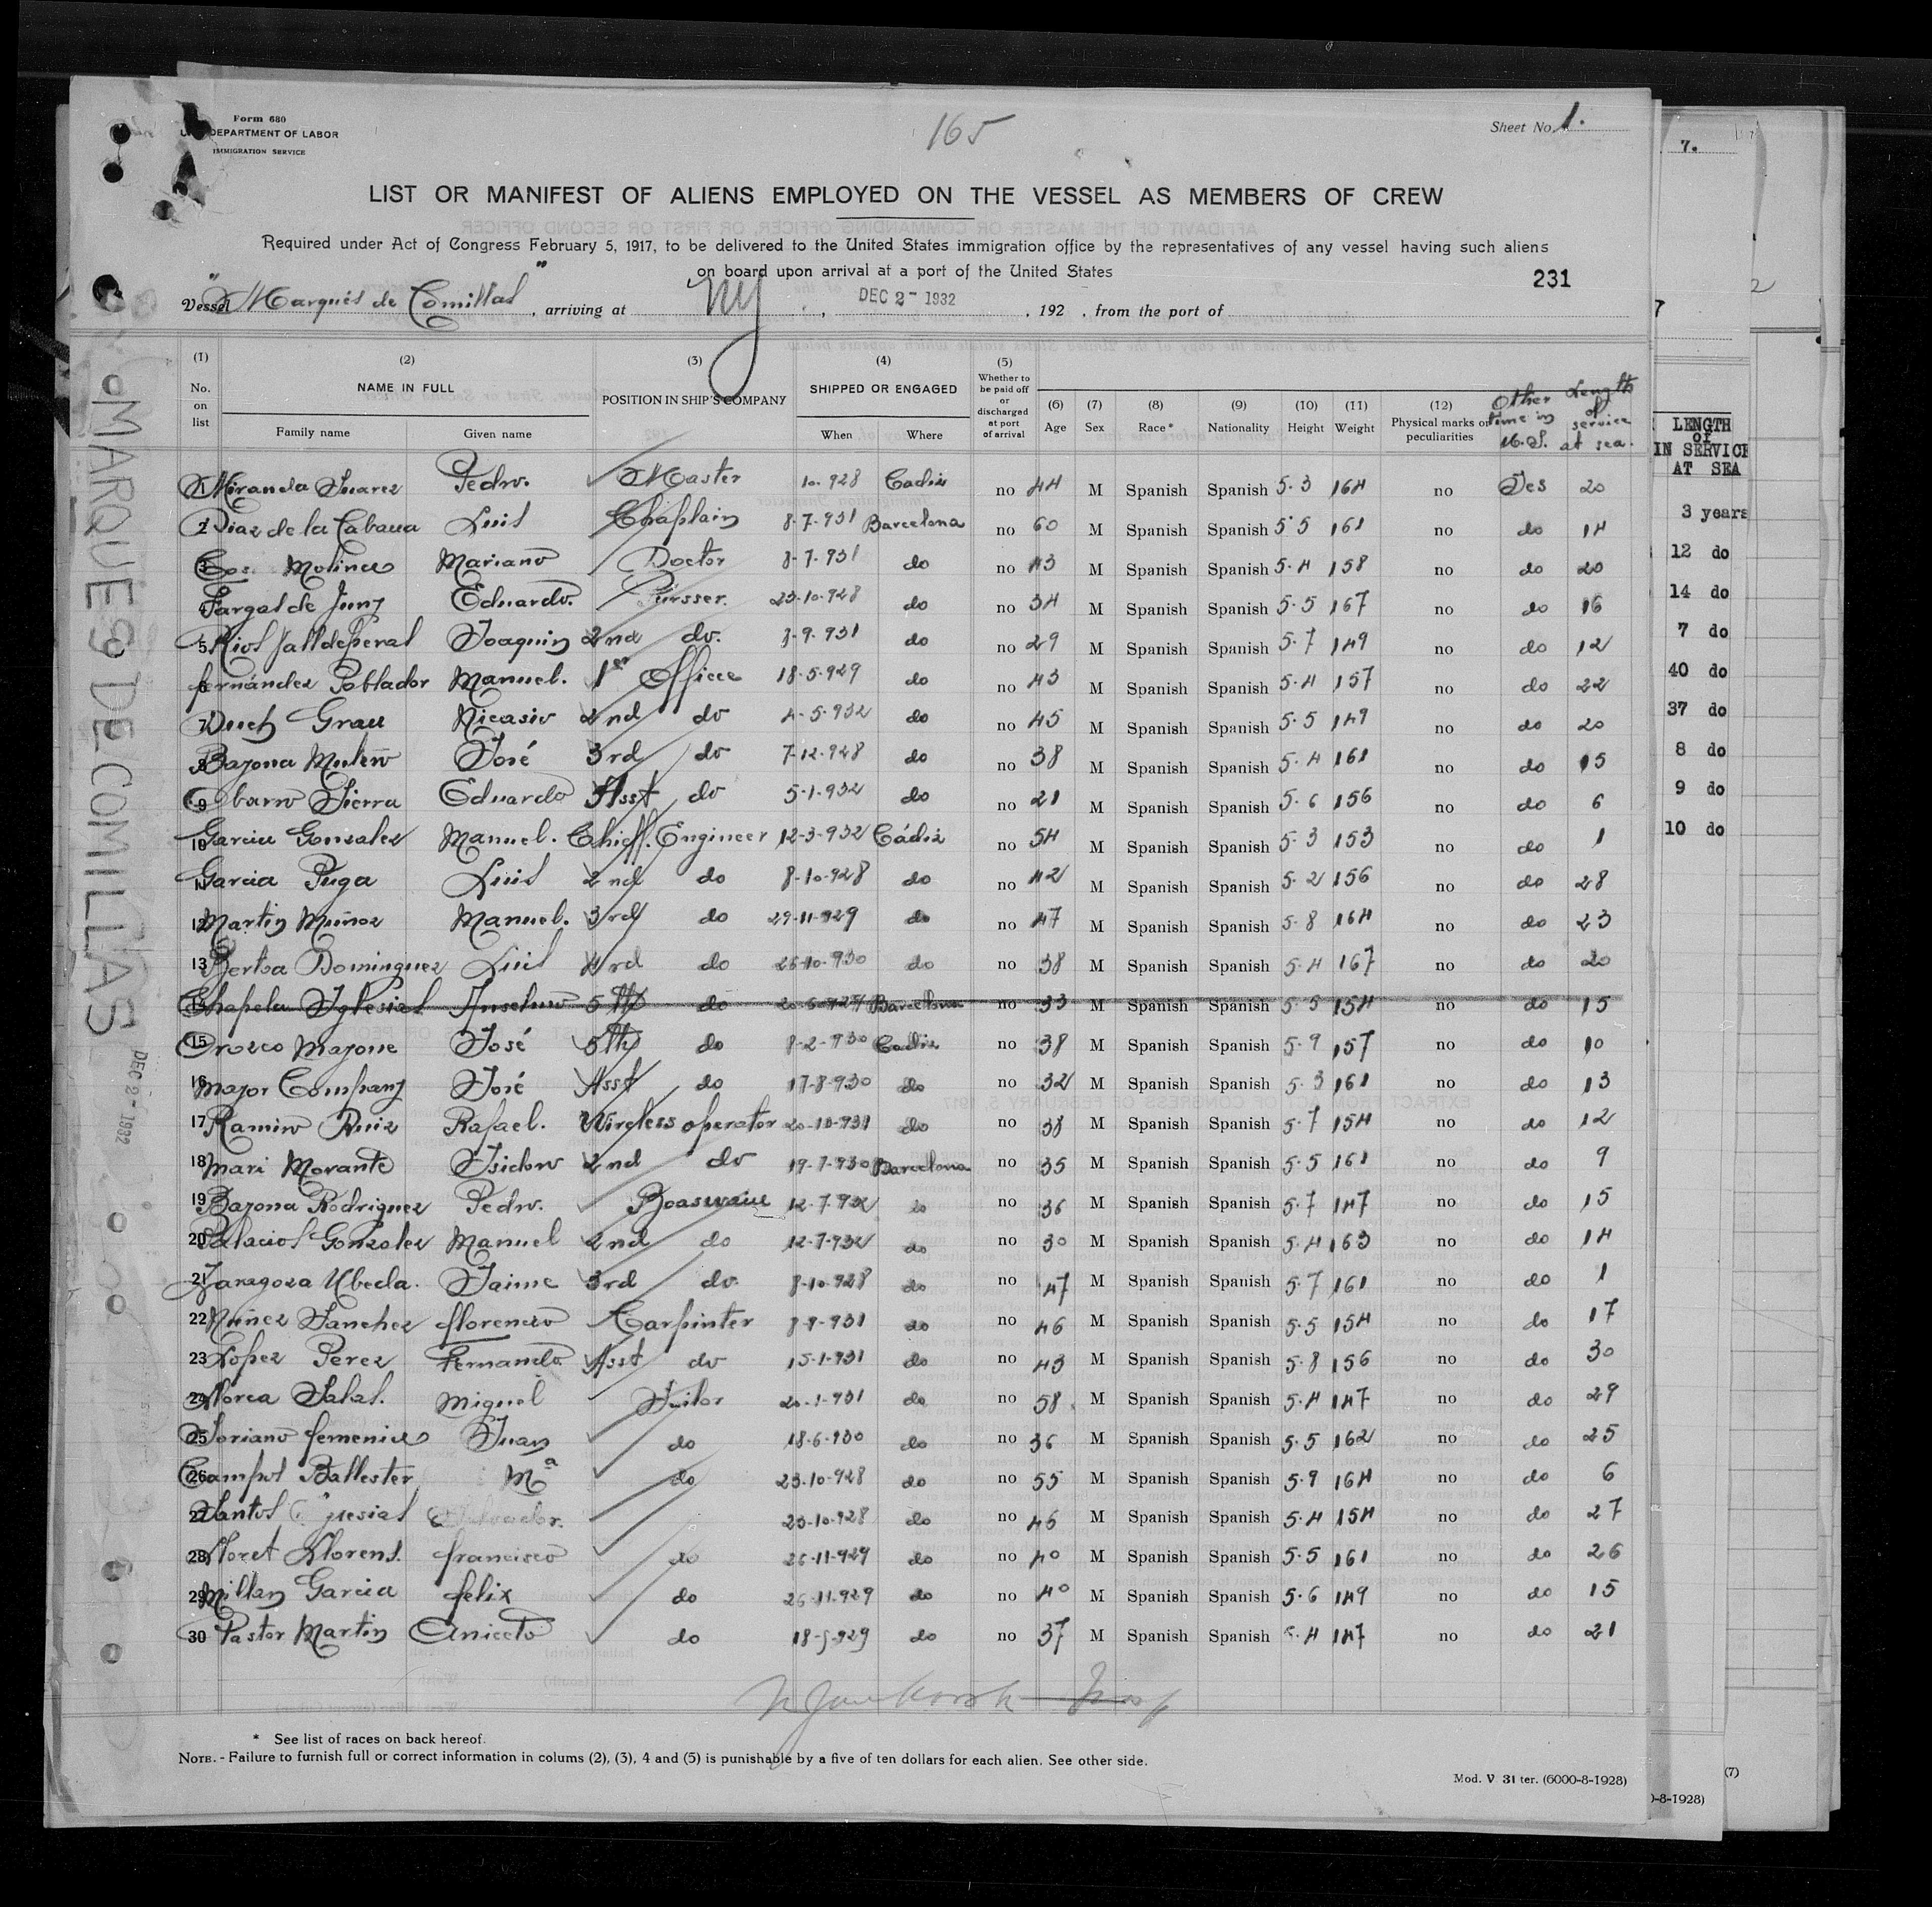 Form 680
DEPARTMENT OF LABOR
IMMIGRATION SERVICE
165
Sheet No. 1.
LIST OR MANIFEST OF ALIENS EMPLOYED ON THE VESSEL AS MEMBERS OF CREW
Required under Act of Congress February 5, 1917, to be delivered to the United States immigration office by the representatives of any vessel having such aliens
on board upon arrival at a port of the United States
231
Vessel "Marqués de Comillas", arriving at NY, DEC 2 - 1932, 192 , from the port of
(1) No. on list (2) NAME IN FULL Family name Given name (3) POSITION IN SHIP'S COMPANY (4) SHIPPED OR ENGAGED When Where (5) Whether to be paid off or discharged at port of arrival (6) Age (7) Sex (8) Race* (9) Nationality (10) Height (11) Weight (12) Physical marks or peculiarities Other time in U.S. Length of service at sea.
1 Miranda Suarez Pedro. Master 10-928 Cadiz no 44 M Spanish Spanish 5.3 164 no Yes 20
2 Diaz de la Luis Chaplain 8-7-931 Barcelona no 60 M Spanish Spanish 5 5 161 no do 14
3 Cos Molinas Mariano Doctor 8-7-931 do no 43 M Spanish Spanish 5.4 158 no do 20
4 Fargas de Juny Eduardo. Pursser. 23-10-928 do no 34 M Spanish Spanish 5.5 167 no do 16
5 Rios Valldeperas Joaquin 2nd do. 8-9-931 do no 29 M Spanish Spanish 5.7 149 no do 12
6 Fernández Poblador Manuel. 1er Officer 18-5-929 do no 43 M Spanish Spanish 5.4 157 no do 22
7 Duch Grau Nicasio 2nd do 4-5-932 do no 45 M Spanish Spanish 5.5 149 no do 20
8 Bayona José 3rd do 7-12-928 do no 38 M Spanish Spanish 5.4 161 no do 15
9 Sierra Eduardo Asst do 5-1-932 do no 21 M Spanish Spanish 5.6 156 no do 6
10 Garcia Gonzalez Manuel. Chieff. Engineer 12-3-932 Cádiz no 54 M Spanish Spanish 5.3 153 no do 1
11 Garcia Puga Luis 2nd do 8-10-928 do no 42 M Spanish Spanish 5.2 156 no do 28
12 Martin Muñoz Manuel. 3rd do 29-11-929 do no 47 M Spanish Spanish 5.8 164 no do 23
13 Dominguez Luis 4rd do 26-10-930 do no 38 M Spanish Spanish 5.4 167 no do 20
14 Chapela Iglesias Anselmo 5th do Barcelona no 33 M Spanish Spanish 5 5 154 no do 15
15 Orozco Mayone José 5th do 8-2-930 Cadiz no 38 M Spanish Spanish 5.9 157 no do 10
16 Mayor Company José Asst do 17-8-930 do no 32 M Spanish Spanish 5.3 161 no do 13
17 Ramiro Ruiz Rafael. Wireless operator 20-10-931 do no 38 M Spanish Spanish 5.7 154 no do 12
18 Mari Morante Isidoro 2nd do 19-7-930 Barcelona no 35 M Spanish Spanish 5.5 161 no do 9
19 Bayona Rodriguez Pedro. 12-7-932 do no 36 M Spanish Spanish 5.7 147 no do 15
20 Palacios Gonzalez Manuel 2nd do 12-7-932 do no 30 M Spanish Spanish 5.4 163 no do 14
21 Zaragoza Ubeda. Jaime 3rd do. 8-10-928 do no 47 M Spanish Spanish 5.7 161 no do 1
22 Nuñez Sanchez Florencio Carpinter 8-8-931 do no 46 M Spanish Spanish 5.5 154 no do 17
23 Lopez Perez Fernando Asst do 15-1-931 do no 43 M Spanish Spanish 5.8 156 no do 30
24 Llorca Salas. Miguel Sailor 20-1-931 do no 58 M Spanish Spanish 5.4 147 no do 29
25 Soriano Femenias Juan do 18-6-930 do no 36 M Spanish Spanish 5.5 162 no do 25
26 Campos Ballester Mª do 23-10-928 do no 55 M Spanish Spanish 5.9 164 no do 6
27 Santos 23-10-928 do no 46 M Spanish Spanish 5.4 154 no do 27
28 Lloret Llorens. Francisco do 26-11-929 do no 40 M Spanish Spanish 5.5 161 no do 26
29 Millan Garcia Felix do 26-11-929 do no 40 M Spanish Spanish 5.6 149 no do 15
30 Pastor Martin Aniceto do 18-5-929 do no 37 M Spanish Spanish 5.4 147 no do 21
* See list of races on back hereof.
NOTE. - Failure to furnish full or correct information in colums (2), (3), 4 and (5) is punishable by a five of ten dollars for each alien. See other side.
Mod. V 31 ter. (6000-8-1928)
MARQUES DE COMILLAS
DEC 2 - 1932
7.
LENGTH
OF
IN SERVICE
AT SEA
3 years
12 do
14 do
7 do
40 do
37 do
8 do
9 do
10 do
(7)
0-8-1928)
2
7